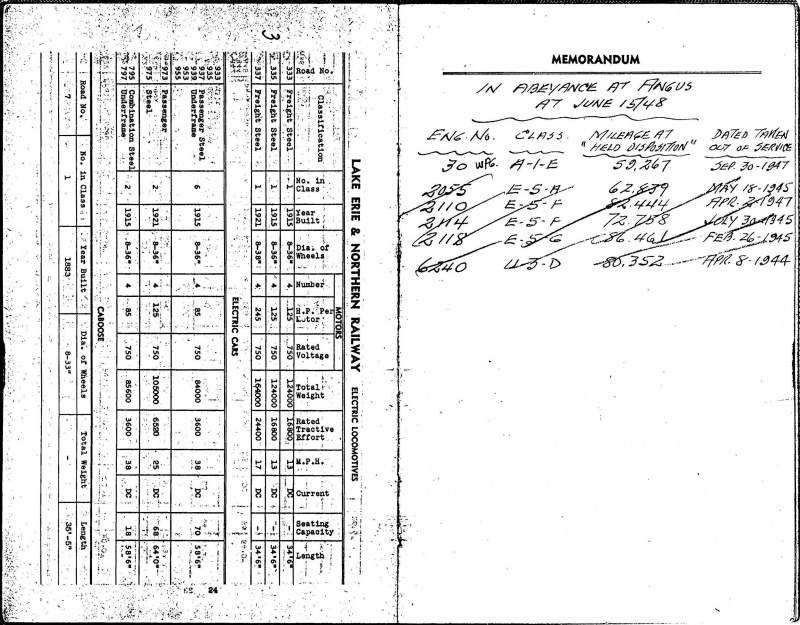 3
LAKE ERIE & NORTHERN RAILWAY ELECTRIC LOCOMOTIVES
Road No. Classification No. in Class Year Built Dia. of Wheels MOTORS Number H.P. Per Motor Rated Voltage Total Weight Rated Tractive Effort M.P.H. Current Seating Capacity Length
333 Freight Steel 1 1915 8-36" 4 125 750 124000 16800 13 DC - 34'6"
335 Freight Steel 1 1915 8-36" 4 125 750 124000 16800 13 DC - 34'6"
337 Freight Steel 1 1921 8-38" 4 245 750 164000 24400 17 DC - 34'6"
ELECTRIC CARS
933
935
937 Passenger Steel
939 Underframe 6 1915 8-36" 4 85 750 84000 3600 38 DC 70 58'6"
953
955
973 Passenger
975 Steel 2 1921 8-36" 4 125 750 105000 6520 25 DC 68 64'0"
795 Combination Steel
797 Underframe 2 1915 8-36" 4 85 750 85600 3600 38 DC 18 58'6"
CABOOSE
Road No. No. in Class Year Built Dia. of Wheels Total Weight Length
7 1 1883 8-33" - 35'-5"
24
MEMORANDUM
IN ABEYANCE AT ANGUS
AT JUNE 15/48
ENG. NO. CLASS. MILEAGE AT DATED TAKEN
"HELD DISPOSITION" OUT OF SERVICE
30 WPG. A-1-E 59,267 SEP. 30-1947
2055 E-5-A 62.839 MAY 18-1945
2110 E-5-F 82.444 APR. 2-1947
2114 E-5-F 72.758 JULY 30-1945
2118 E-5-G 86.461 FEB. 26-1945
6240 U-3-D 80.352 APR. 8-1944